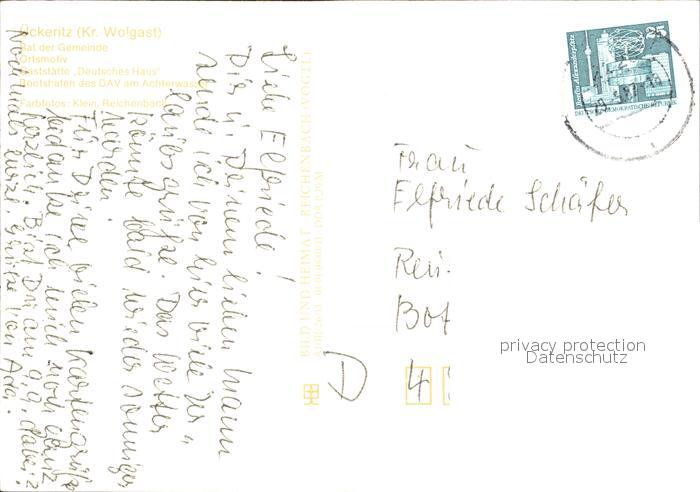 Ückeritz (Kr. Wolgast)
Rat der Gemeinde
Ortsmotiv
Gaststätte „Deutsches Haus"
Bootshafen des DAV am Achterwasser
Farbfotos: Klein, Reichenbach
Liebe Elfriede!
Dir u. Deinem lieben Mann
sende ich von hier viele Ur-
laubsgrüße. Das Wetter
könnte bald wieder sonniger
werden.
Für Deine vielen Kartengrüße
bedanke ich mich noch ganz
herzlich. Bist Du am 9.9. dabei?
Nochmals herzl. Grüße von Ada.
BILD UND HEIMAT REICHENBACH (VOGTL)
Frau
Elfriede Schäfer
Bot
D
4
Berlin, Alexanderplatz
25
DEUTSCHE DEMOKRATISCHE REPUBLIK
privacy protection
Datenschutz